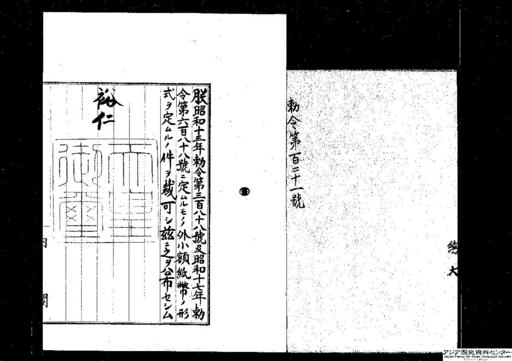 勅令第百二十一號
朕昭和十三年勅令第三百八十八號及昭和十七年勅
令第六百八十八號ニ定ムルモノノ外小額紙幣ノ形
式ヲ定ムルノ件ヲ裁可シ茲ニ之ヲ公布セシム
裕仁
天皇
御璽
内 閣
アジア歴史資料センター